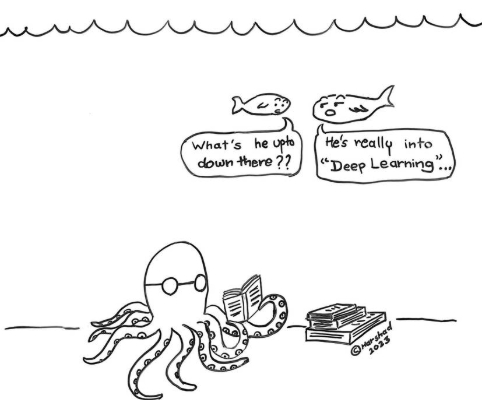 What's he upto
down there??
He's really into
"Deep Learning"...
© Harshad
2023